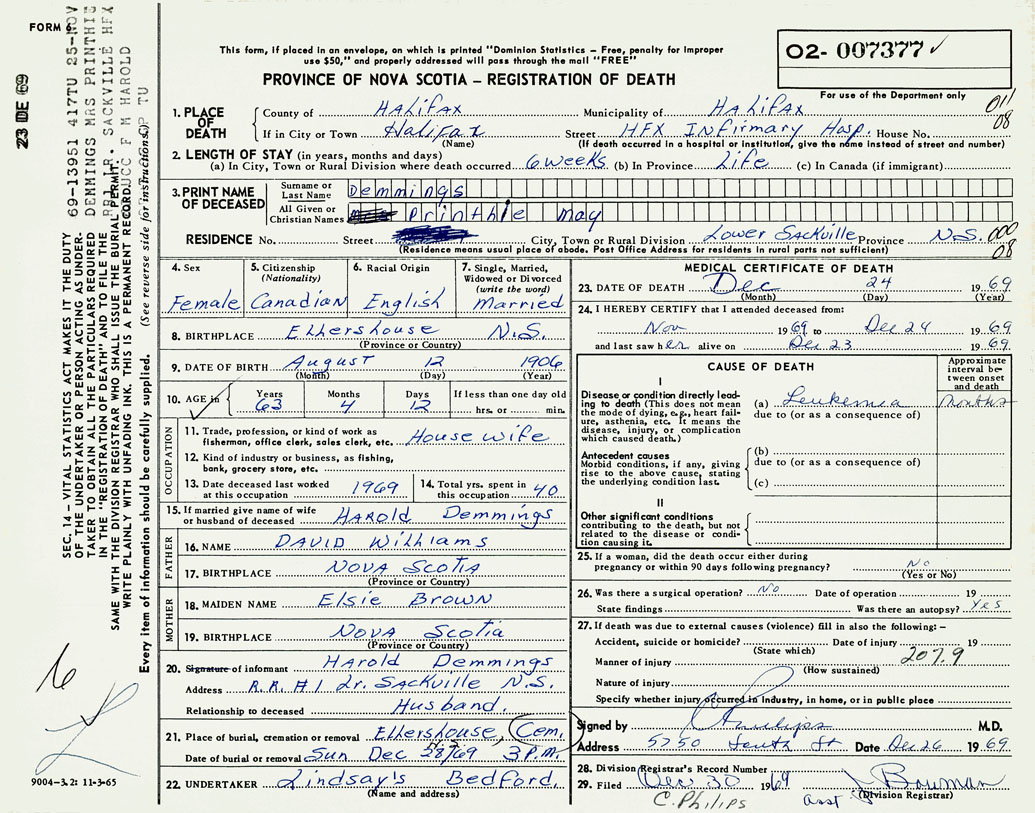 FORM 6
23 DE 69
69-13951 417TU 25-NOV
DEMMINGS MRS PRINTHIE
SACKVILLE HFX
F M HAROLD
SEC. 14 – VITAL STATISTICS ACT MAKES IT THE DUTY
OF THE UNDERTAKER OR PERSON ACTING AS UNDER-
TAKER TO OBTAIN ALL THE PARTICULARS REQUIRED
IN THE "REGISTRATION OF DEATH" AND TO FILE THE
SAME WITH THE DIVISION REGISTRAR WHO SHALL ISSUE THE BURIAL PERMIT.
WRITE PLAINLY WITH UNFADING INK. THIS IS A PERMANENT RECORD.
Every item of information should be carefully supplied. (See reverse side for instructions.)
This form, if placed in an envelope, on which is printed "Dominion Statistics – Free, penalty for improper
use $50," and properly addressed will pass through the mail "FREE"
PROVINCE OF NOVA SCOTIA – REGISTRATION OF DEATH
02- 007377 ✓
For use of the Department only
011
08
1. PLACE OF DEATH County of HALiFAX Municipality of HALiFAX
If in City or Town Halifax Street HFX INFirmary Hosp. House No.
(Name) (If death occurred in a hospital or institution, give the name instead of street and number)
2. LENGTH OF STAY (in years, months and days)
(a) In City, Town or Rural Division where death occurred 6 weeks (b) In Province Life (c) In Canada (if immigrant)
3. PRINT NAME OF DECEASED Surname or Last Name Demmings
All Given or Christian Names Printhie May
RESIDENCE No. Street City, Town or Rural Division Lower Sackville Province N.S. 000
(Residence means usual place of abode. Post Office Address for residents in rural parts not sufficient) 08
4. Sex 5. Citizenship (Nationality) 6. Racial Origin 7. Single, Married, Widowed or Divorced (write the word)
Female Canadian English Married
8. BIRTHPLACE Ellershouse N.S.
(Province or Country)
9. DATE OF BIRTH August 12 1906
(Month) (Day) (Year)
10. AGE in Years Months Days If less than one day old
63 4 12 hrs. or min.
OCCUPATION
11. Trade, profession, or kind of work as
fisherman, office clerk, sales clerk, etc. House wife
12. Kind of industry or business, as fishing,
bank, grocery store, etc.
13. Date deceased last worked at this occupation 1969 14. Total yrs. spent in this occupation 40
15. If married give name of wife
or husband of deceased HAROLD Demmings
FATHER
16. NAME DAVID Williams
17. BIRTHPLACE NOVA SCOTIA
(Province or Country)
MOTHER
18. MAIDEN NAME Elsie Brown
19. BIRTHPLACE NOVA Scotia
(Province or Country)
20. Signature of informant HArold Demmings
Address R.R.#1 Lr. Sackville N.S.
Relationship to deceased Husband.
21. Place of burial, cremation or removal Ellershouse, Cem.
Date of burial or removal Sun Dec 28/69 3 P.M.
22. UNDERTAKER Lindsay's Bedford.
(Name and address)
MEDICAL CERTIFICATE OF DEATH
23. DATE OF DEATH Dec 24 1969
(Month) (Day) (Year)
24. I HEREBY CERTIFY that I attended deceased from:
Nov 1969 to Dec 24 1969
and last saw her alive on Dec 23 1969
CAUSE OF DEATH
Approximate interval between onset and death
I
Disease or condition directly lead-
ing to death (This does not mean
the mode of dying, e.g., heart fail-
ure, asthenia, etc. It means the
disease, injury, or complication
which caused death.)
(a) Leukemia Months
due to (or as a consequence of)
Antecedent causes
Morbid conditions, if any, giving
rise to the above cause, stating
the underlying condition last.
(b)
due to (or as a consequence of)
(c)
II
Other significant conditions
contributing to the death, but not
related to the disease or condi-
tion causing it.
25. If a woman, did the death occur either during
pregnancy or within 90 days following pregnancy? No
(Yes or No)
26. Was there a surgical operation? No Date of operation 19
State findings Was there an autopsy? Yes
27. If death was due to external causes (violence) fill in also the following:–
Accident, suicide or homicide? Date of injury 19
(State which) 207.9
Manner of injury
(How sustained)
Nature of injury
Specify whether injury occurred in industry, in home, or in public place
Signed by Philips M.D.
Address 5750 South St Date Dec 26 1969
28. Division Registrar's Record Number
29. Filed Dec 30 1969 J Bowman
C. Philips asst (Division Registrar)
16
9004-3.2: 11-3-65